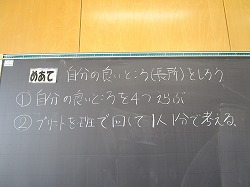 めあて 自分の良いところ(長所)をしろう
①自分の良いところを4つえらぶ
②プリートを班で回して1人1分で考える。